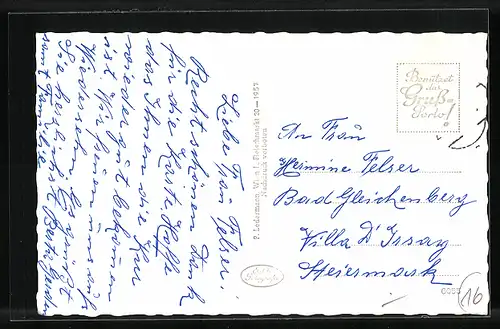 Liebe Frau Felser!
Recht schönen Dank
für die Karte. Hoffe
das Ihnen die Kur
wieder gut bekommen
ist. Wir freuen uns aufs
Wiedersehn. Es grüsst
Sie herzlichst
samt Familie
P. Ledermann, Wien I, Fleischmarkt 20 — 1957
Nachdruck verboten
Benützet
das
Gruß-
Porto!
An Frau
Hermine Felser
Bad Gleichenberg
Villa D'Orsay
Steiermark
16